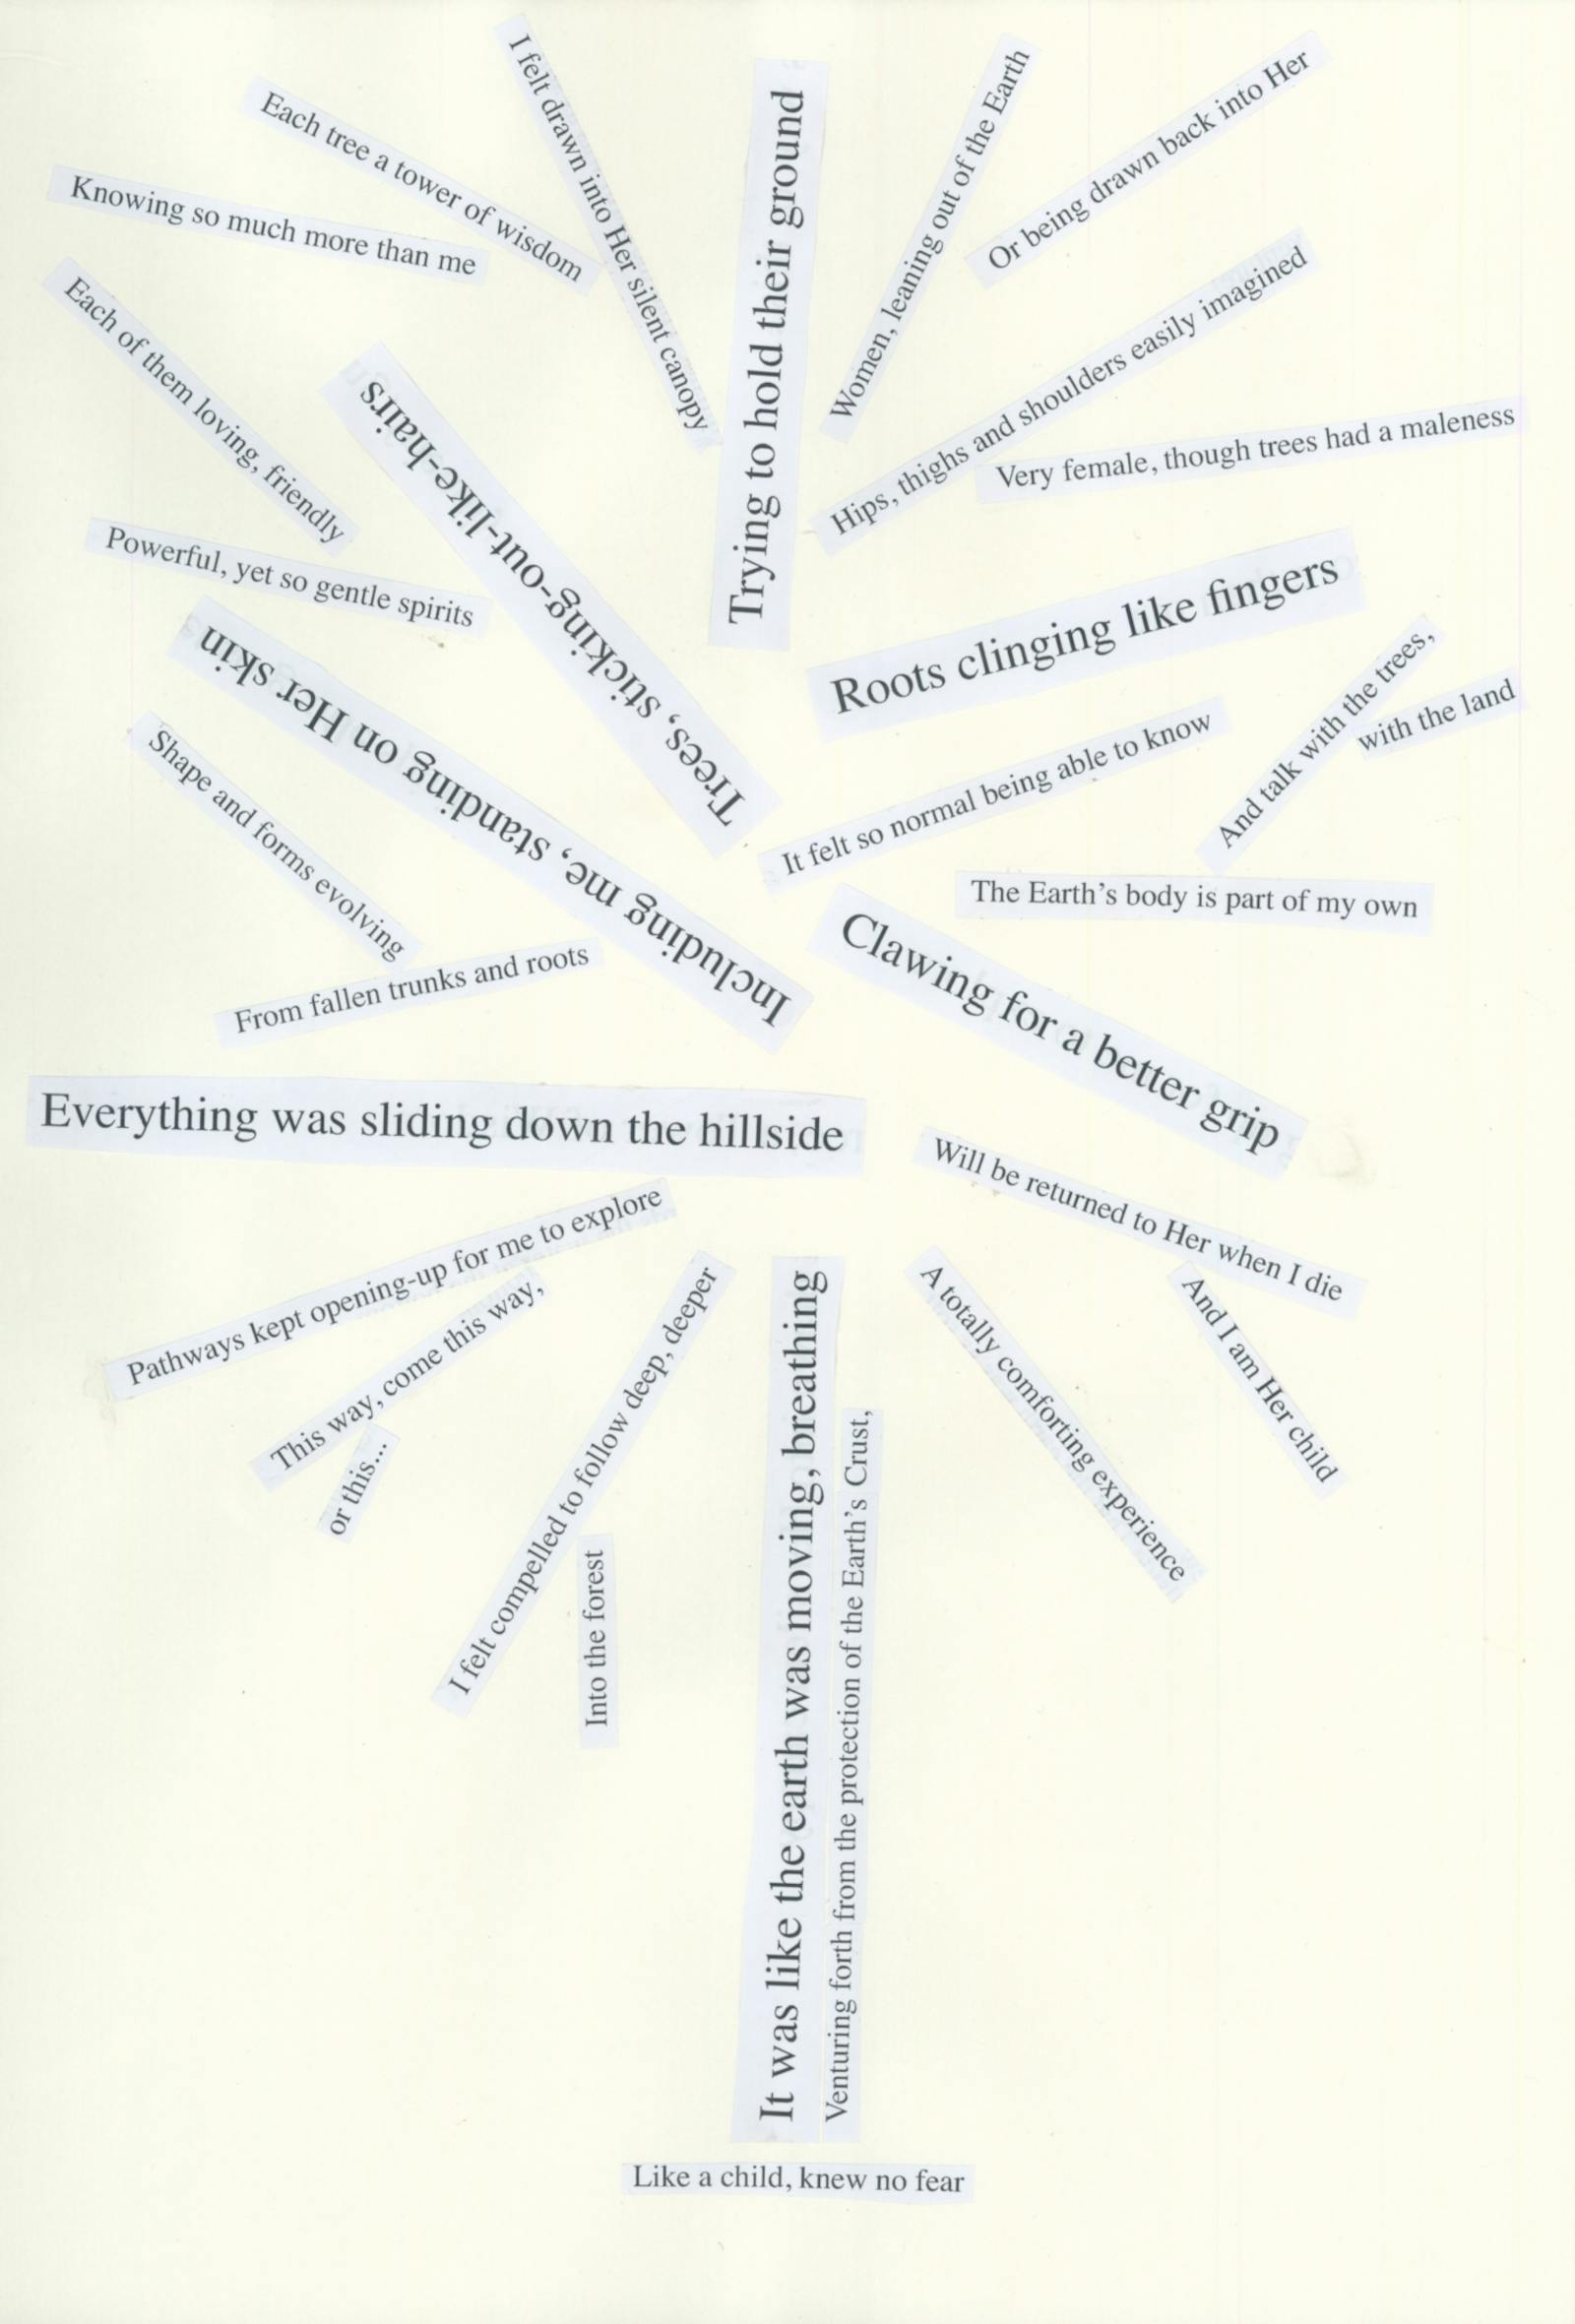 It was like the earth was moving, breathing
Everything was sliding down the hillside
Including me, standing on Her skin
Trees, sticking-out-like-hairs
Trying to hold their ground
Roots clinging like fingers
Clawing for a better grip
Like a child, knew no fear
Venturing forth from the protection of the Earth's Crust,
Into the forest
I felt compelled to follow deep, deeper
or this...
This way, come this way,
Pathways kept opening-up for me to explore
From fallen trunks and roots
Shape and forms evolving
Powerful, yet so gentle spirits
Each of them loving, friendly
Knowing so much more than me
Each tree a tower of wisdom
I felt drawn into Her silent canopy
Women, leaning out of the Earth
Or being drawn back into Her
Hips, thighs and shoulders easily imagined
Very female, though trees had a maleness
It felt so normal being able to know
And talk with the trees,
with the land
The Earth's body is part of my own
Will be returned to Her when I die
And I am Her child
A totally comforting experience